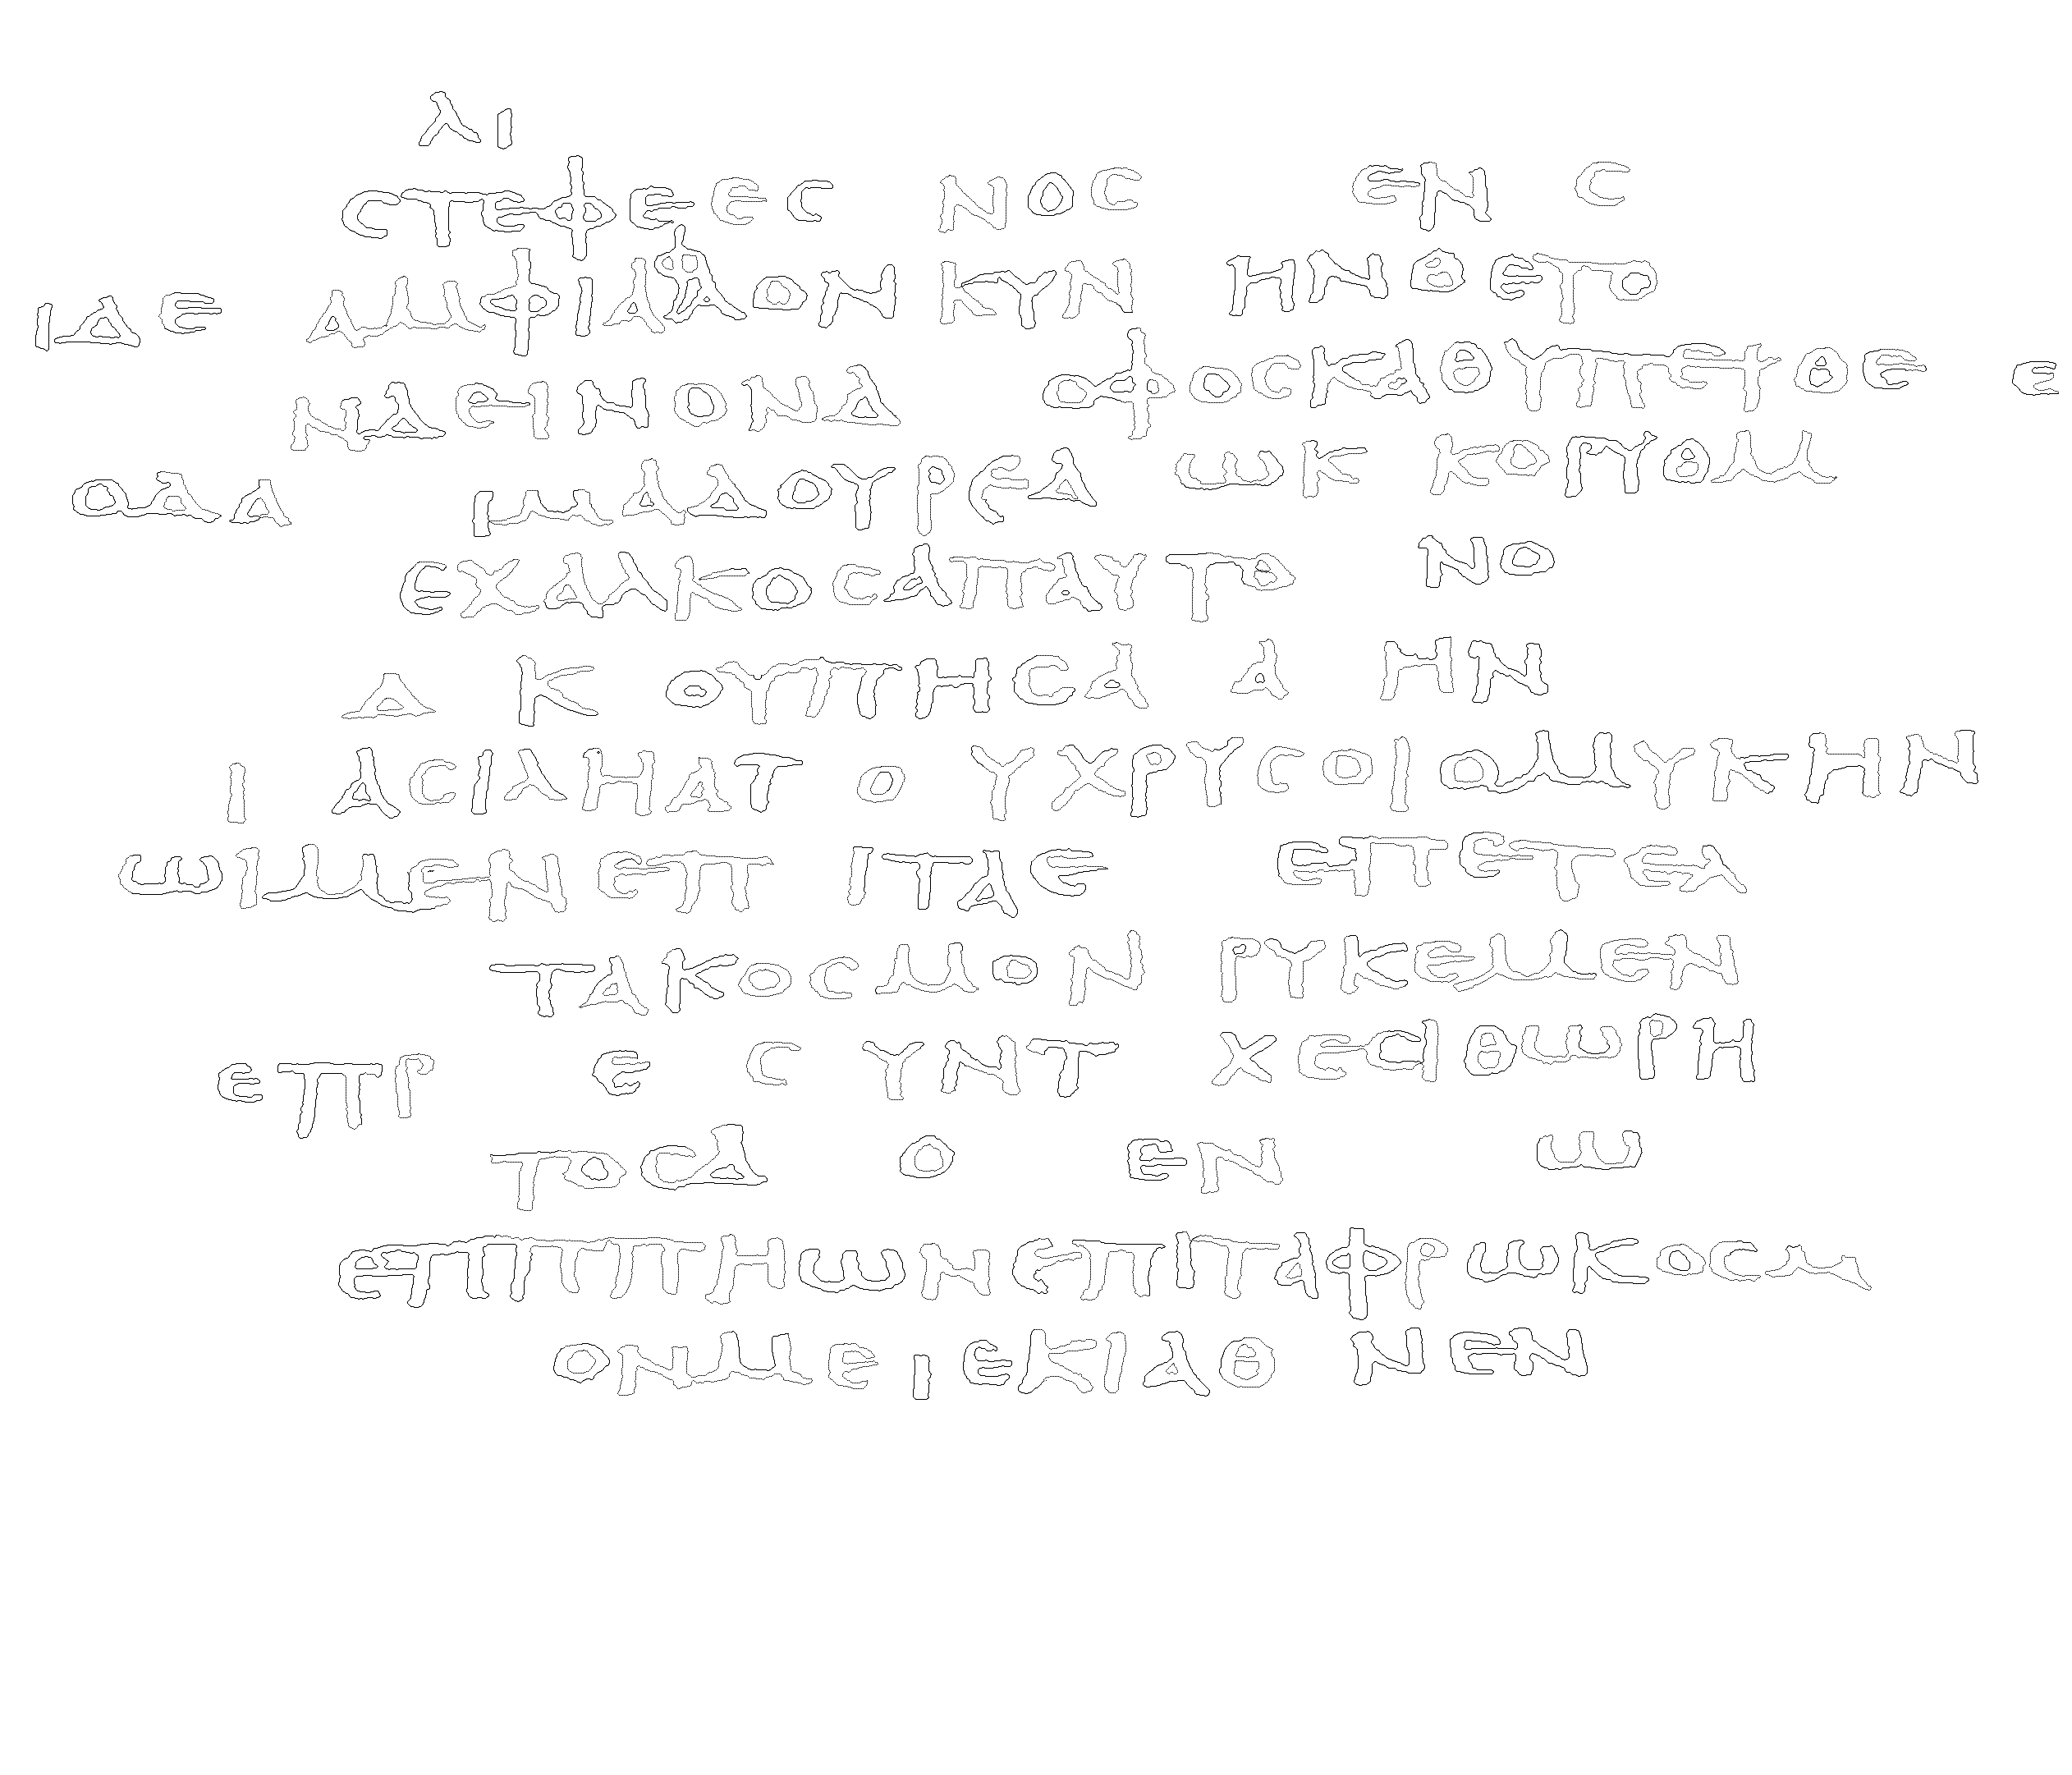 λι
στεφεες νος εν ς
ιδε αμφιαλον κυν ηνθετο
νδεινονα οφοσκαθυπερθε ε
οδα ιμαδουρεα ωκ κοπτομ
εχαλκοσαπαυτο νο
δ κ ουπησα α ην
ι ασιληατ ο υχρυσοιομυκην
ωιμενεπ ιταε επετελ
τακοσμον ρυκεμεν
επρ ε ς υντ χεσιθωρη
τοσδ ο εν ω
επιππηωνεπιταφρωκοσμ
ονμε ιεκιαθ νεν